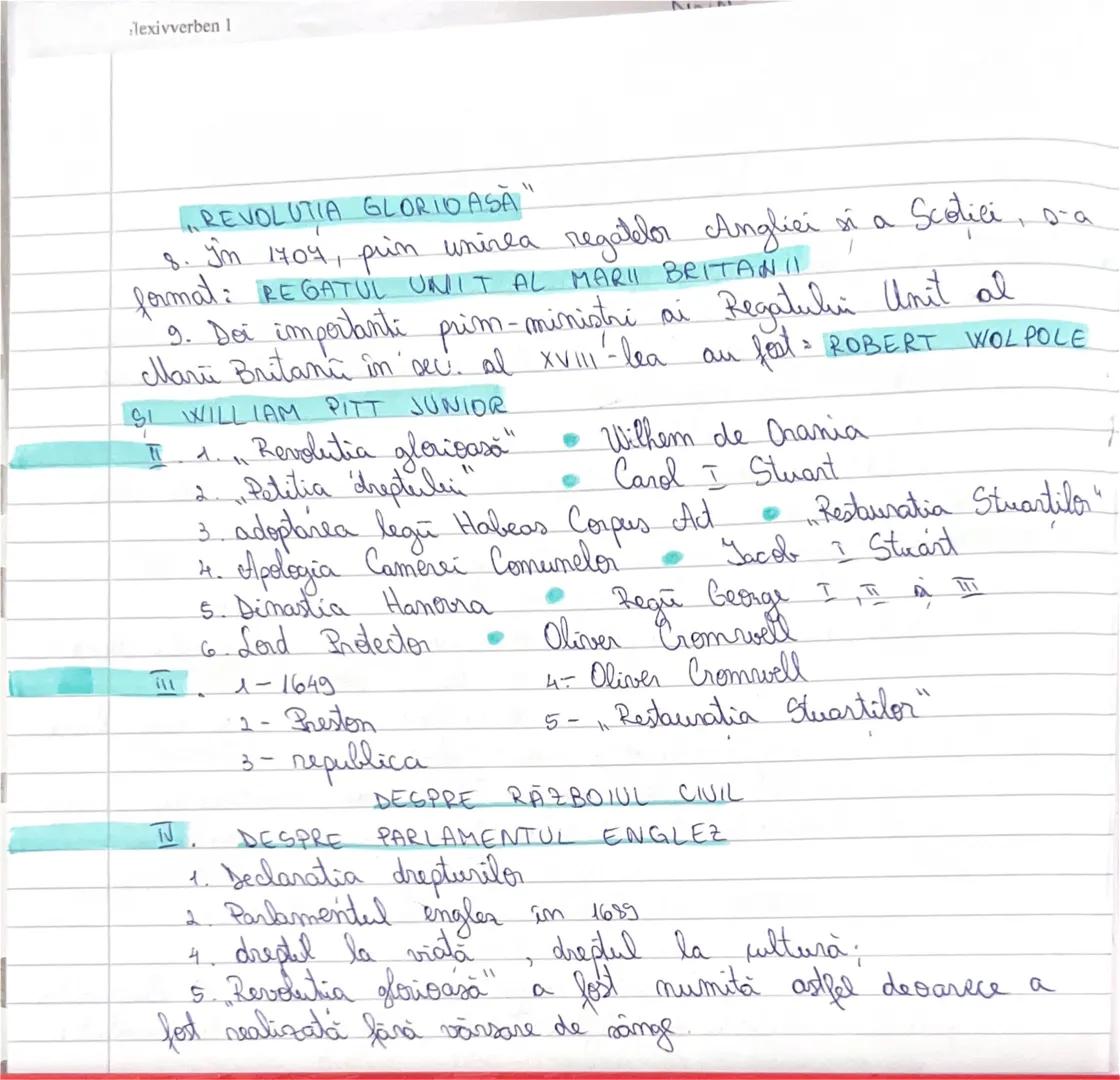 lexivverben 1
„REVOLUȚIA GLORIOASĂ"
8. În 1707, prin unirea regatelor Angliei și a Scoției, s-a
format: REGATUL UNIT AL MARII BRITANII
9. Doi importanți prim-miniștri ai Regatului Unit al
Marii Britanii în sec. al XVIII-lea au fost: ROBERT WOLPOLE
ȘI WILLIAM PITT JUNIOR
II. 1. „Revoluția glorioasă" • Wilhem de Orania
2. „Petiția dreptului" • Carol I Stuart
3. adoptarea legii Habeas Corpus Act • „Restaurația Stuarților"
4. Apologia Camerei Comunelor • Jacob I Stuart
5. Dinastia Hanovra • Regii George I, II și III
6. Lord Protector • Oliver Cromwell
III. 1 - 1649 4 - Oliver Cromwell
2 - Preston 5 - „Restaurația Stuarților"
3 - republica
DESPRE RĂZBOIUL CIVIL
IV. DESPRE PARLAMENTUL ENGLEZ
1. Declarația drepturilor
2. Parlamentul englez în 1689
4. dreptul la viață, dreptul la cultură;
5. „Revoluția glorioasă" a fost numită astfel deoarece a
fost realizată fără vărsare de sânge.